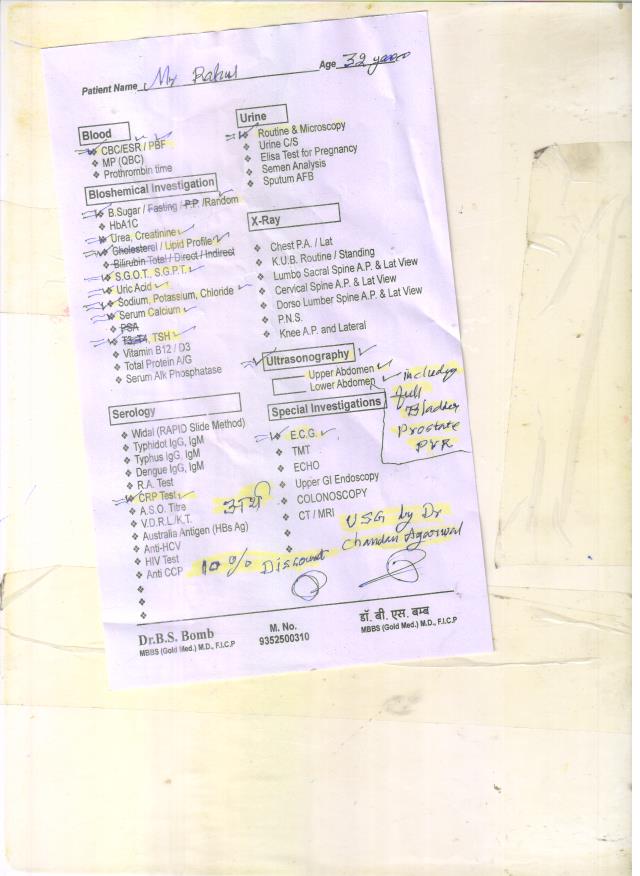 Patient Name Mr Rahul
Age 32 years
Blood
CBC/ESR / PBF
MP (QBC)
Prothrombin time
Bioshemical Investigation
B.Sugar / Fasting / P.P. /Random
HbA1C
Urea, Creatinine
Cholesterel / Lipid Profile
Bilirubin Total / Direct / Indirect
S.G.O.T. S.G.P.T.
Uric Acid
Sodium, Potassium, Chloride
Serum Calcium
PSA
T3, T4, TSH
Vitamin B12 / D3
Total Protein A/G
Serum Alk Phosphatase
Serology
Widal (RAPID Slide Method)
Typhidot IgG, IgM
Typhus IgG, IgM
Dengue IgG, IgM
R.A. Test
CRP Test
A.S.O. Titre
V.D.R.L/K.T.
Australia Antigen (HBs Ag)
Anti-HCV
HIV Test
Anti CCP
Urine
Routine & Microscopy
Urine C/S
Elisa Test for Pregnancy
Semen Analysis
Sputum AFB
X-Ray
Chest P.A. / Lat
K.U.B. Routine / Standing
Lumbo Sacral Spine A.P. & Lat View
Cervical Spine A.P. & Lat View
Dorso Lumber Spine A.P. & Lat View
P.N.S.
Knee A.P. and Lateral
Ultrasonography
Upper Abdomen
Lower Abdomen
including
full
Bladder
Prostate
PVR
Special Investigations
E.C.G.
TMT
ECHO
Upper GI Endoscopy
COLONOSCOPY
CT / MRI
USG by Dr
Chandan Agarwal
10% Discount
Dr.B.S. Bomb
MBBS (Gold Med.) M.D., F.I.C.P
M. No.
9352500310
डॉ. बी. एस. बम्ब
MBBS (Gold Med.) M.D., F.I.C.P